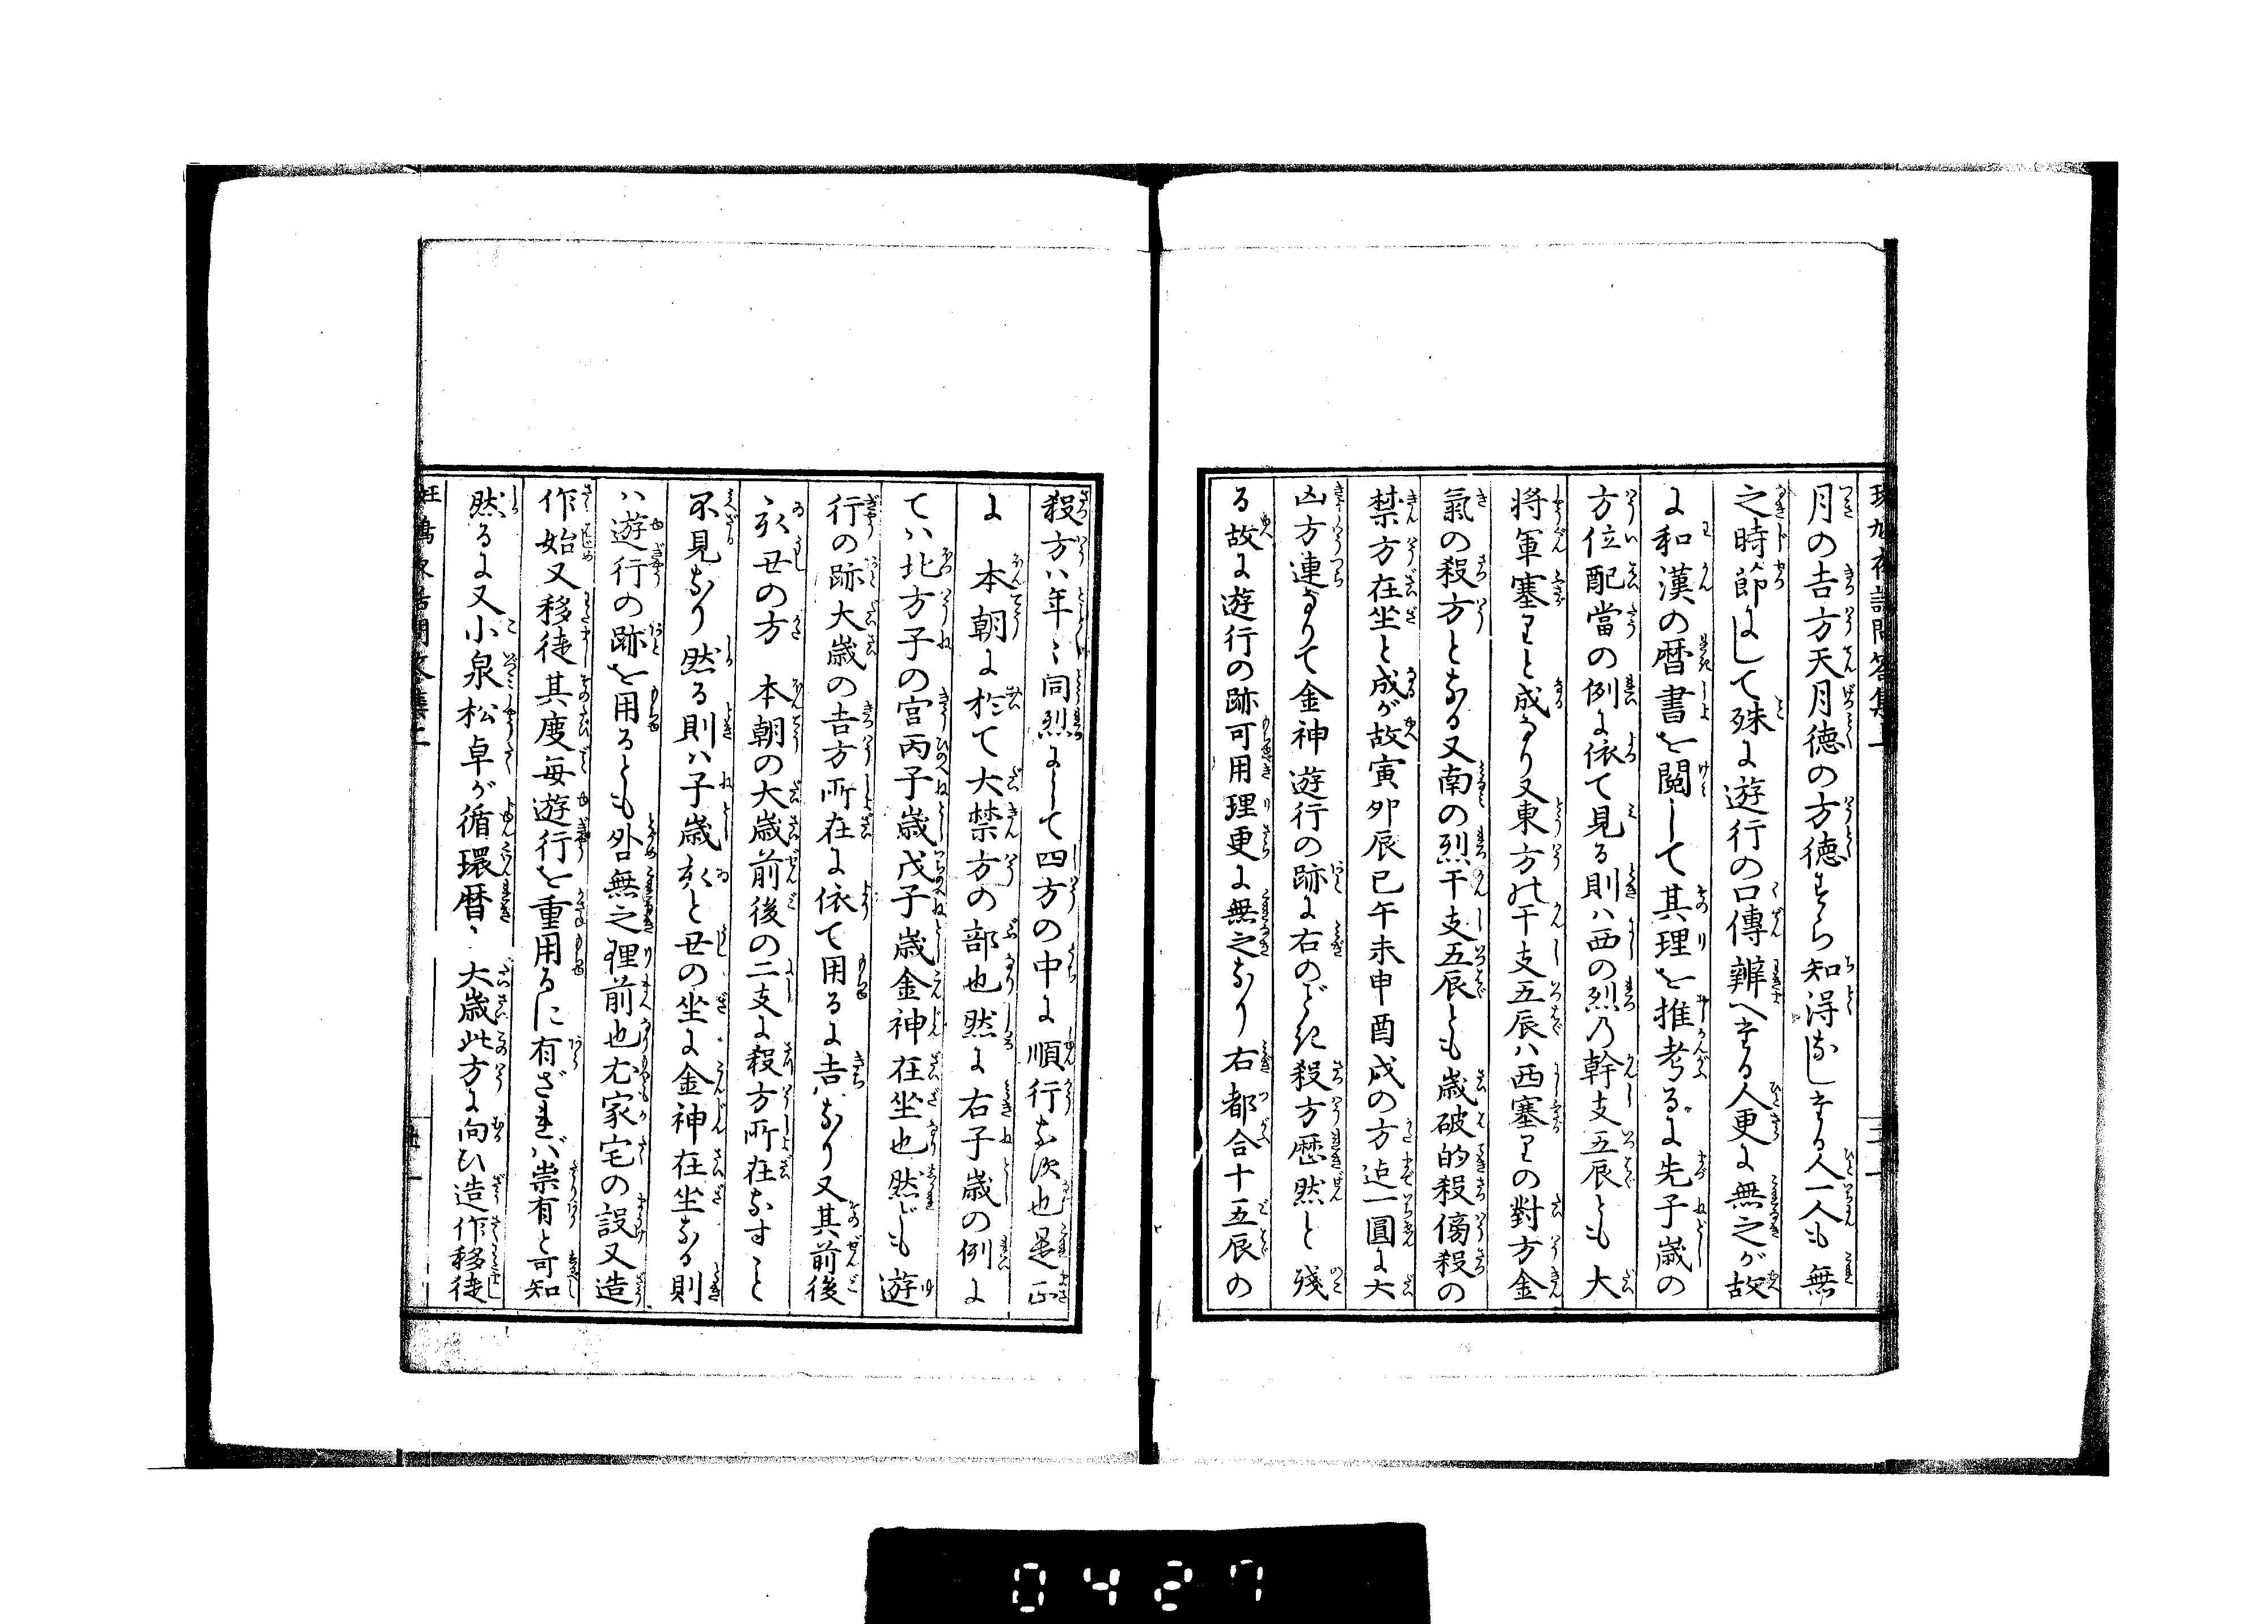 月の吉方天月徳の方徳すら知得なしする人一人も無
之時節にして殊に遊行の口傳辨へする人更に無之が故
に和漢の暦書を閲して其理を推考るに先子歳の
方位配當の例に依て見る則ハ西の烈乃幹支五辰とも大
將軍塞りと成なり又東方の干支五辰ハ西塞りの對方金
氣の殺方となる又南の烈干支五辰とも歳破的殺傷殺の
禁方在坐と成が故寅卯辰巳午未申酉戌の方迠一圓に大
凶方連なりて金神遊行の跡に右のごとき殺方歴然と殘
る故に遊行の跡可用理更に無之なり右都合十五辰の
殺方ハ年〻同烈にして四方の中に順行なす也是正
に 本朝に於て大禁方の部也然に右子歳の例に
てハ北方子の宮丙子歳戊子歳金神在坐也然ども遊
行の跡大歳の吉方所在に依て用るに吉なり又其前後
亥丑の方 本朝の大歳前後の二支に殺方所在なすこと
不見なり然る則ハ子歳亥と丑の坐に金神在坐なる則
ハ遊行の跡を用るとも咎無之理前也尤家宅の設又造
作始又移徙其度毎遊行を重用るに有ざれバ祟有と可知
然るに又小泉松卓が循環暦、大歳此方に向ひ造作移徙